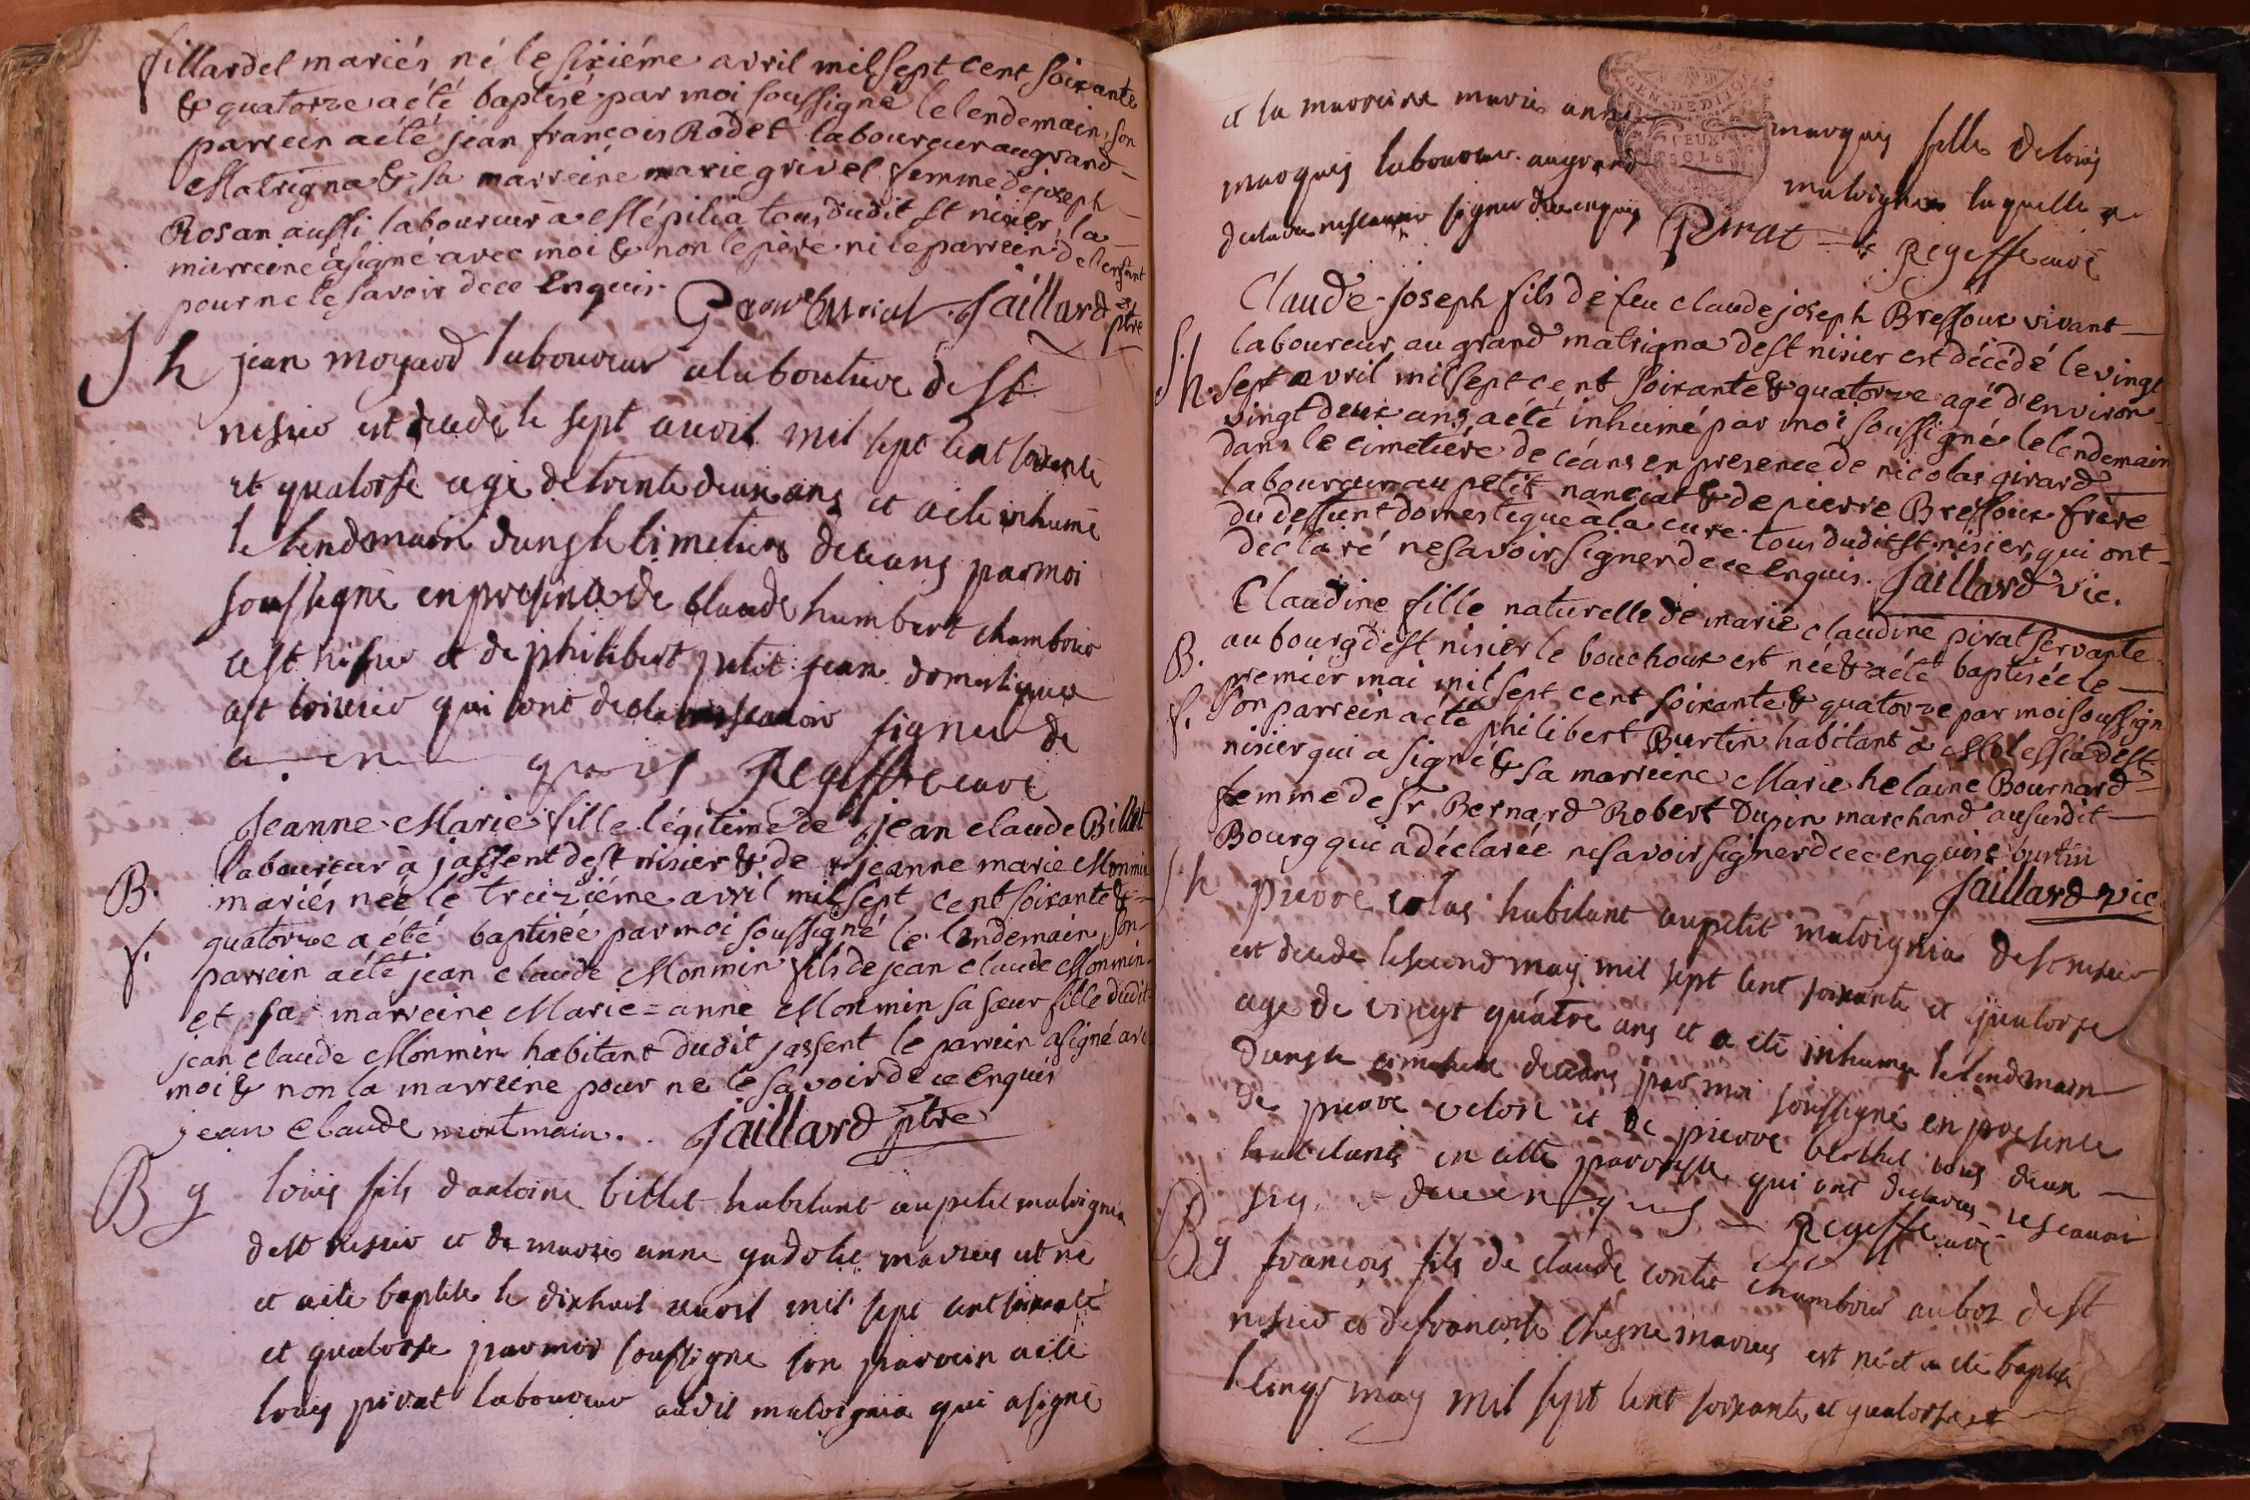 fillardel mariés né le sixiéme avril mil sept cent soixante
& quatorze a été baptisé par moi soussigné le lendemain, son
parrein a été jean francois Rodet laboureur au grand
Matrigna & sa marreine marie grivel femme de joseph
Rosan aussi laboureur a Eslépilia tous dudit st nisier, la
marreine a signé avec moi & non le père ni le parrein de lenfant
pour ne le savoir de ce Enquis. Jaillard ptre
Sh jean moyard laboureur a la bouture de St
nisier est decede le sept avril mil sept cent soixante
et quatorse age de trente deux ans et a ete inhumé
le lendemain dans le cimetiere de ceans par moi
soussigné en presence de claude humbert chambrier
a st nisier et de philibert petit jean domestique
a st trivier qui ont declare ne scavoir signer de
ce enquis Regeffe curé
Jeanne Marie fille légitime de jean claude Billet
B. laboureur à jassent de st nisier & de jeanne marie Monmin
mariés née le treiziéme avril mil sept cent soixante &
f. quatorze a été baptisée par moi soussigné le lendemain, son
parrein a été jean claude Monmin fils de jean claude Monmin
et sa marreine Marie=anne Monmin sa sœur fille dudit
jean claude Monmin habitant dudit jassent le parrein a signé avec
moi & non la marreine pour ne le savoir de ce Enquis
jean claude montmain. Jaillard ptre
B g louis fils dantoine billet habitant au petit matrignia
de st nisier et de marie anne gadolet mariés est né
et a ete baptise le dixhuit avril mil sept cent soixante
et quatorse par moi soussigne son parrein a ete
louis pirat laboureur audit matrignia qui a signé
et la marreine marie anne marquis fille de louis
marquis laboureur au grand matrignia laquelle a
declaré ne scavoir signer de ce enquis Pirat Regeffe curé
Claude-joseph fils de feu claude joseph Bressoux vivant
laboureur au grand matrigna de st nisier est décédé le vingt
Sh. sept avril mil sept cent soixante & quatorze agé d'environ
vingt deux ans, a été inhumé par moi soussigné le lendemain
dans le cimetiére de céans en presence de nicolas girard
laboureur au petit nanciat & de pierre Bressoux frère
du deffunt domestique à la cure tous dudit st nisier, qui ont
déclaré ne savoir signer de ce Enquis. Jaillard vic.
Claudine fille naturelle de marie claudine pirat servante
B. au bourg de st nisier le bouchoux est née & a été baptisée le
premiér mai mil sept cent soixante & quatorze par moi soussigné
f. son parrein a été philibert Burtin habitant à Molessia de st
nisier qui a signé & sa marreine Marie helaine Bournard
femme de sr Bernard Robert Dupin marchand au susdit
Bourg qui a déclarée ne savoir signer de ce enquise burtin
Jaillard vic
Sh pierre colas habitant au petit matrignia de st nisier
est decede le second may mil sept cent soixante et quatorse
age de vingt quatre ans et a ete inhume le lendemain
dans le cimetiere de ceans par moi soussigné en presence
de pierre velon et de pierre berthet tous deux
habitants en cette parroisse qui ont declares ne scavoir
sig de ce enquis Regeffe curé
B g francois fils de claude contet chambrier au boz de st
nisier et de francoise chesne mariés est né et a ete baptisé
le cinq may mil sept cent soixante et quatorse et